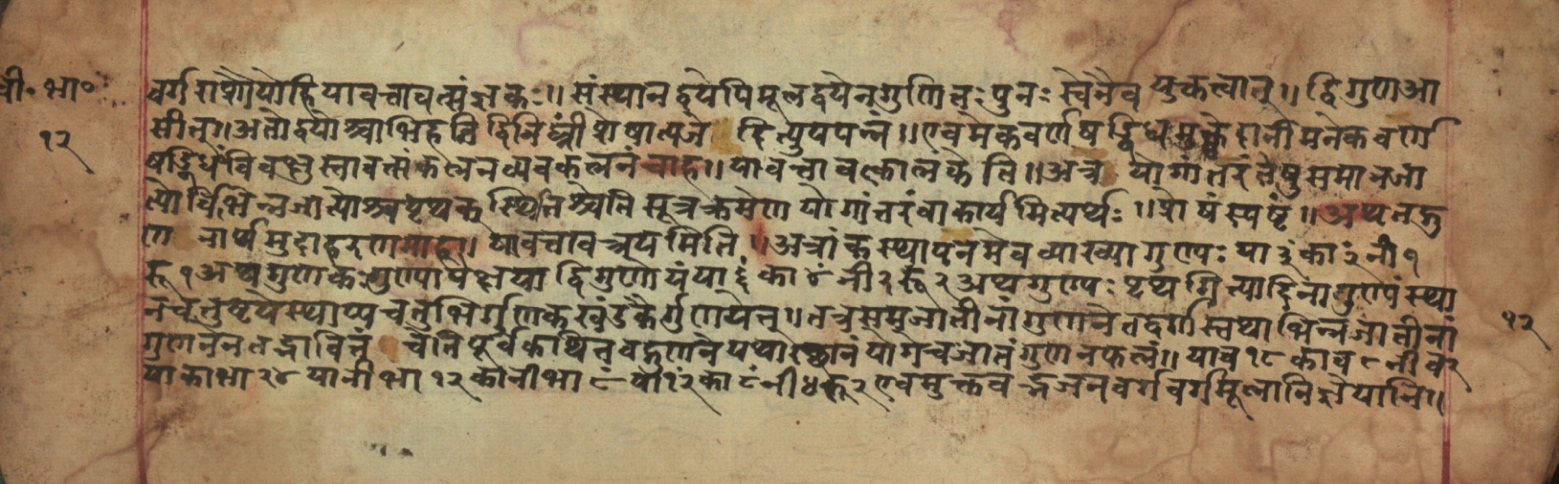 वी॰ भा॰
१२
वर्गराशौयोहियावत्तावत्संज्ञकः॥ संस्थानद्वयेपिमूलद्वयेनगुणितः पुनः स्वेनैव युक्तत्वात्॥ द्विगुणआ
सीत्॥ अतोद्वयोश्चाभिहतिंद्विनिघ्नीं शेषात्यजे दित्युपपन्नं॥ एवमेकवर्णषड्विधमुक्त्वेदानीमनेकवर्ण
षड्विधंविवक्षुस्तावत्संकलनव्यवकलनंचाह॥ यावत्तावत्कालकेति॥ अत्र योगांतरंतेषुसमानजा
त्योर्विभिन्नजात्योश्चपृथक्स्थितिश्चेति सूत्रक्रमेण योगांतरंवाकार्यमित्यर्थः॥ शेषंस्पष्टं॥ अथतद्गु
ण नार्थमुदाहरणमाह॥ यावत्तावत्त्रयमिति॥ अत्रांकस्थापनमेवव्याख्या गुण्यः या ३ं का २ं नी १
रू १ अथगुणकःगुण्यापेक्षया द्विगुणोयं या ६ं का ४ं नी २ रू २ अथगुण्यः पृथगित्यादिना गुण्यंस्था
नचतुष्टयेस्थाप्य चतुर्भिर्गुणकखंडकैर्गुणयेत्॥ तत्रसमजातीनां गुणनेतद्वर्गस्तथा भिन्नजातीनां
गुणनेनतद्भावितं चेति पूर्वकथितवद्गुणनं यथास्थानं योगेचजातंगुणनफलं॥ याव १८ काव ८ नीव २
याकाभा २४ यानीभा १२ं कानीभा ८ं या १२ं का ८ं नी ४ रू २ एवमुक्तवद्भजनवर्गवर्गमूलानिज्ञेयानि॥
१२